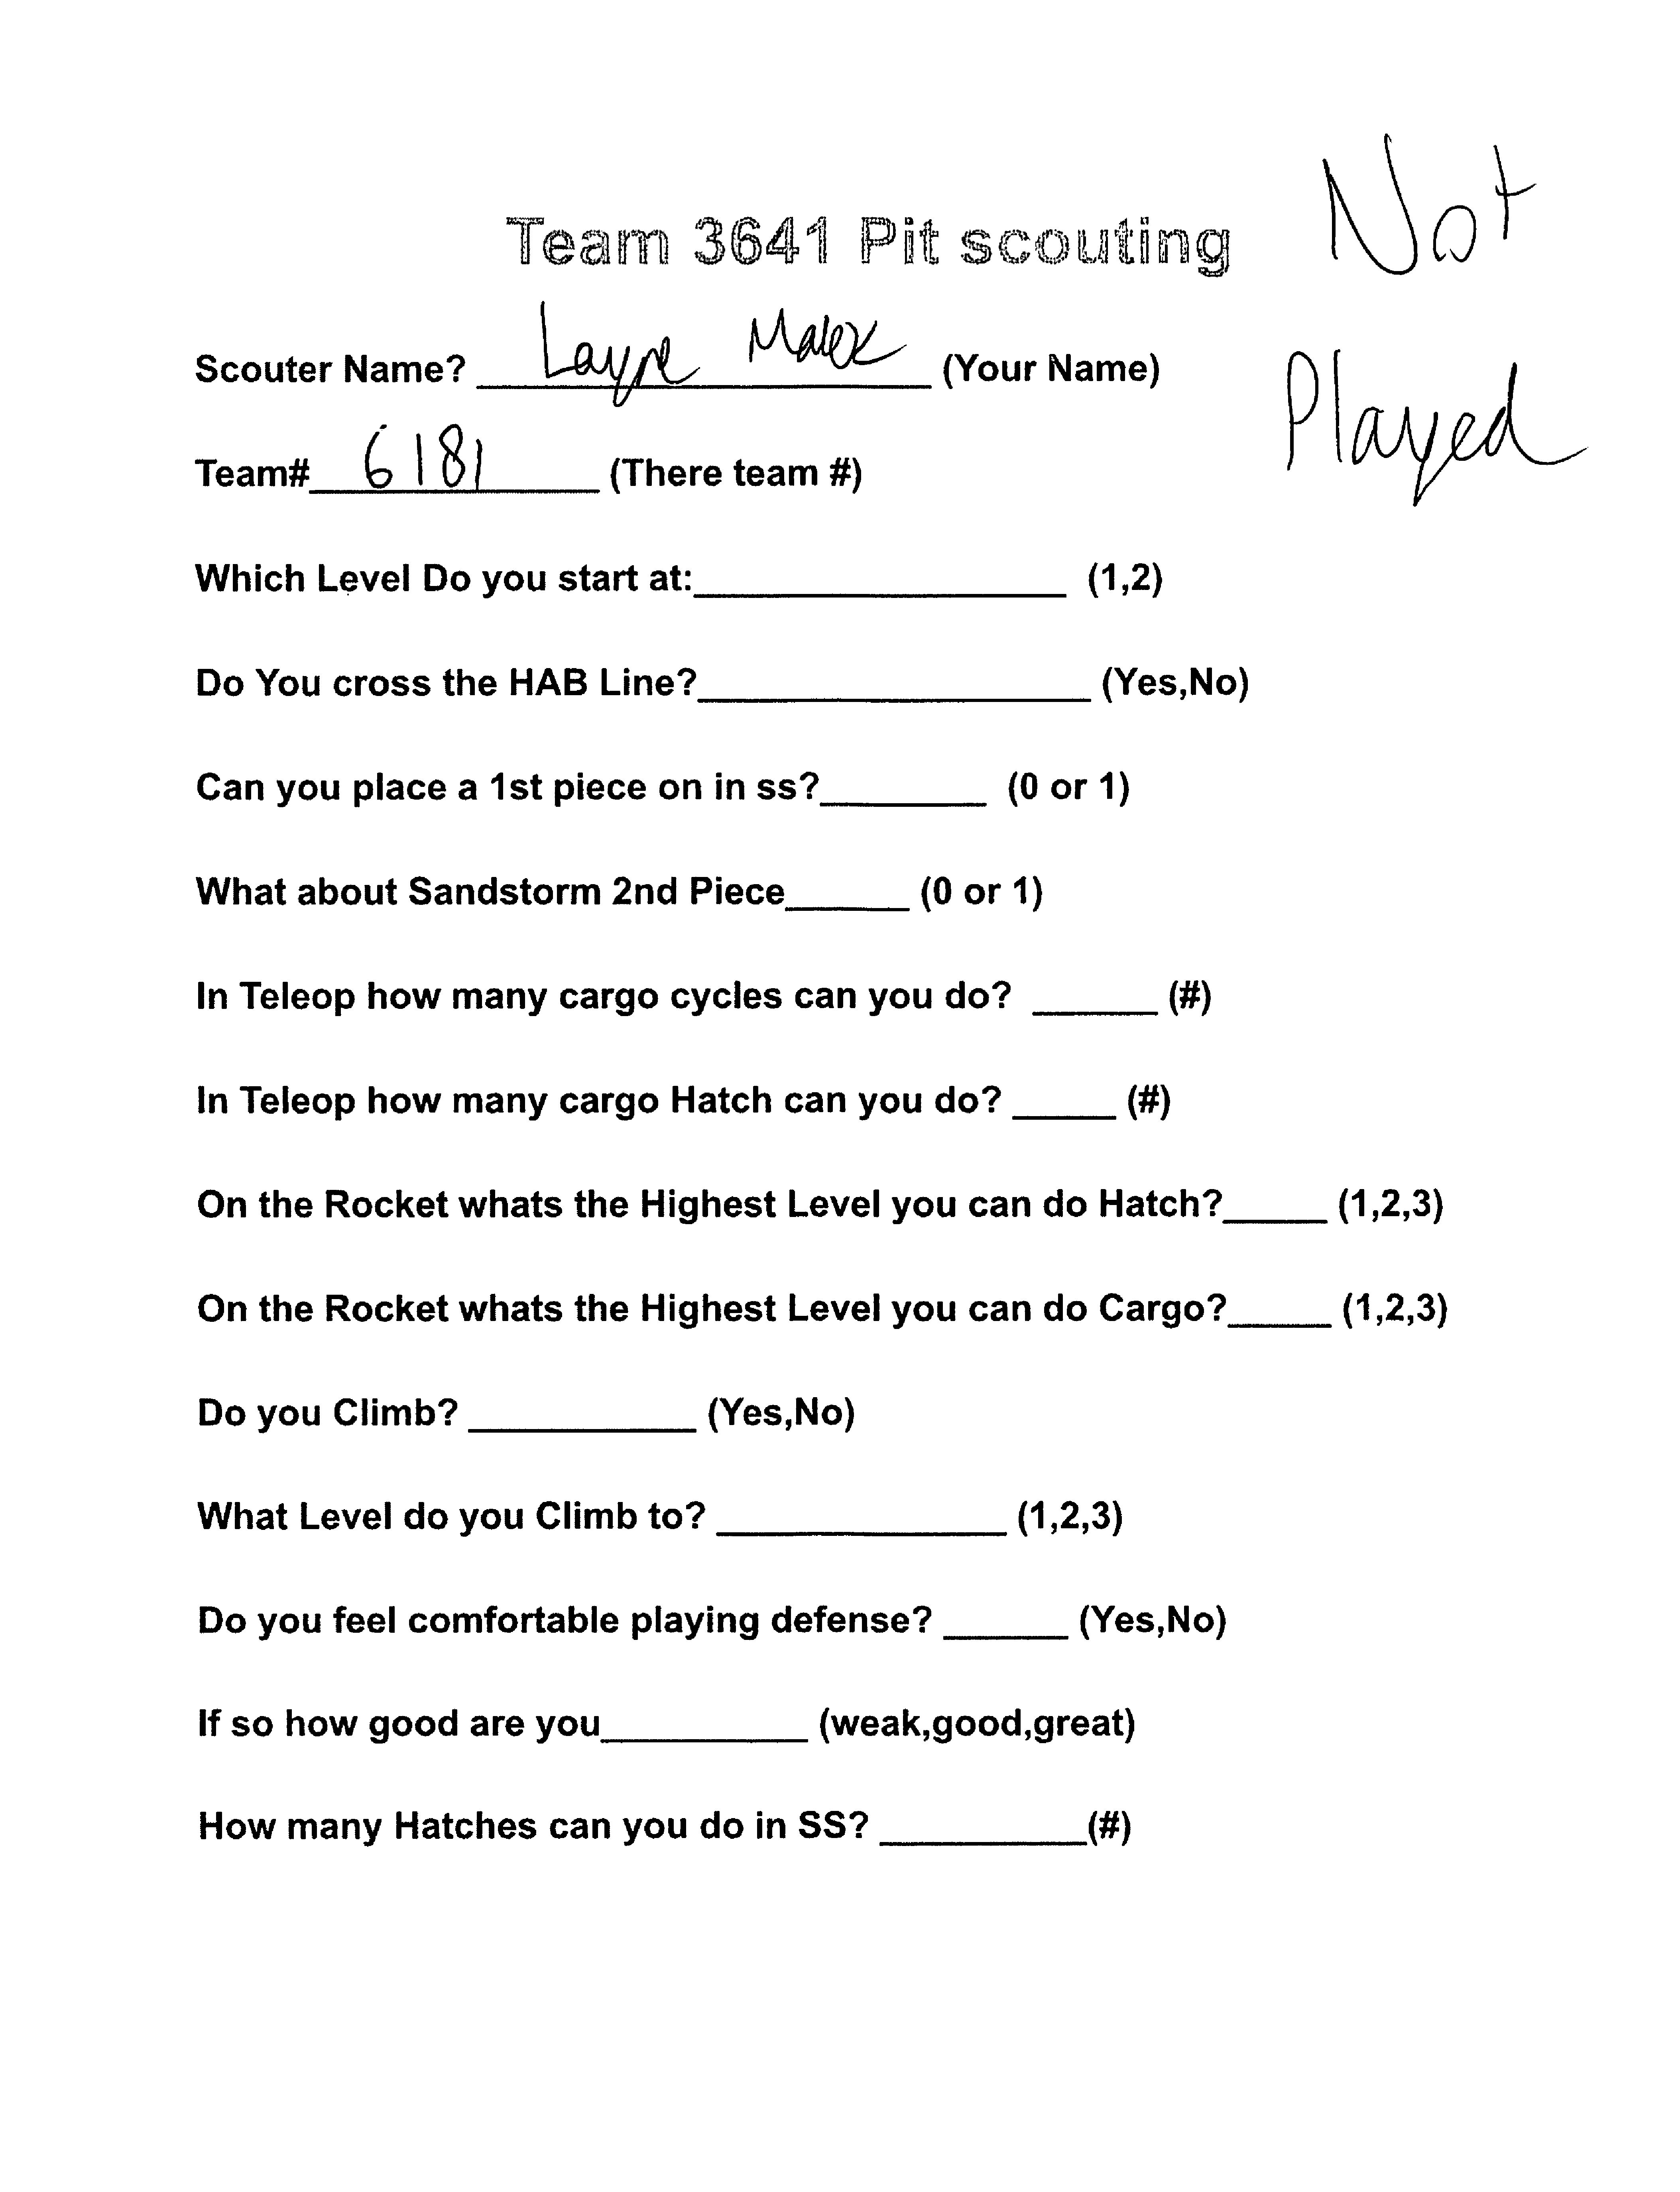 Not
Team 3641 Pit scouting
Scouter Name? Layne Malek (Your Name)
Played
Team# 6181 (There team #)
Which Level Do you start at:__________________ (1,2)
Do You cross the HAB Line?___________________ (Yes,No)
Can you place a 1st piece on in ss?________ (0 or 1)
What about Sandstorm 2nd Piece______ (0 or 1)
In Teleop how many cargo cycles can you do? ______ (#)
In Teleop how many cargo Hatch can you do? _____ (#)
On the Rocket whats the Highest Level you can do Hatch?_____ (1,2,3)
On the Rocket whats the Highest Level you can do Cargo?_____ (1,2,3)
Do you Climb? ___________ (Yes,No)
What Level do you Climb to? ______________ (1,2,3)
Do you feel comfortable playing defense? ______ (Yes,No)
If so how good are you__________ (weak,good,great)
How many Hatches can you do in SS? __________(#)